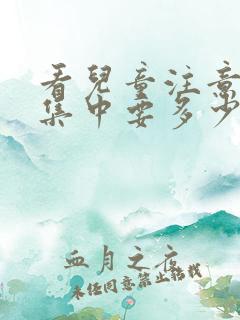 看兒童注意
集中要多少
血月之夜
未经同意禁止转载